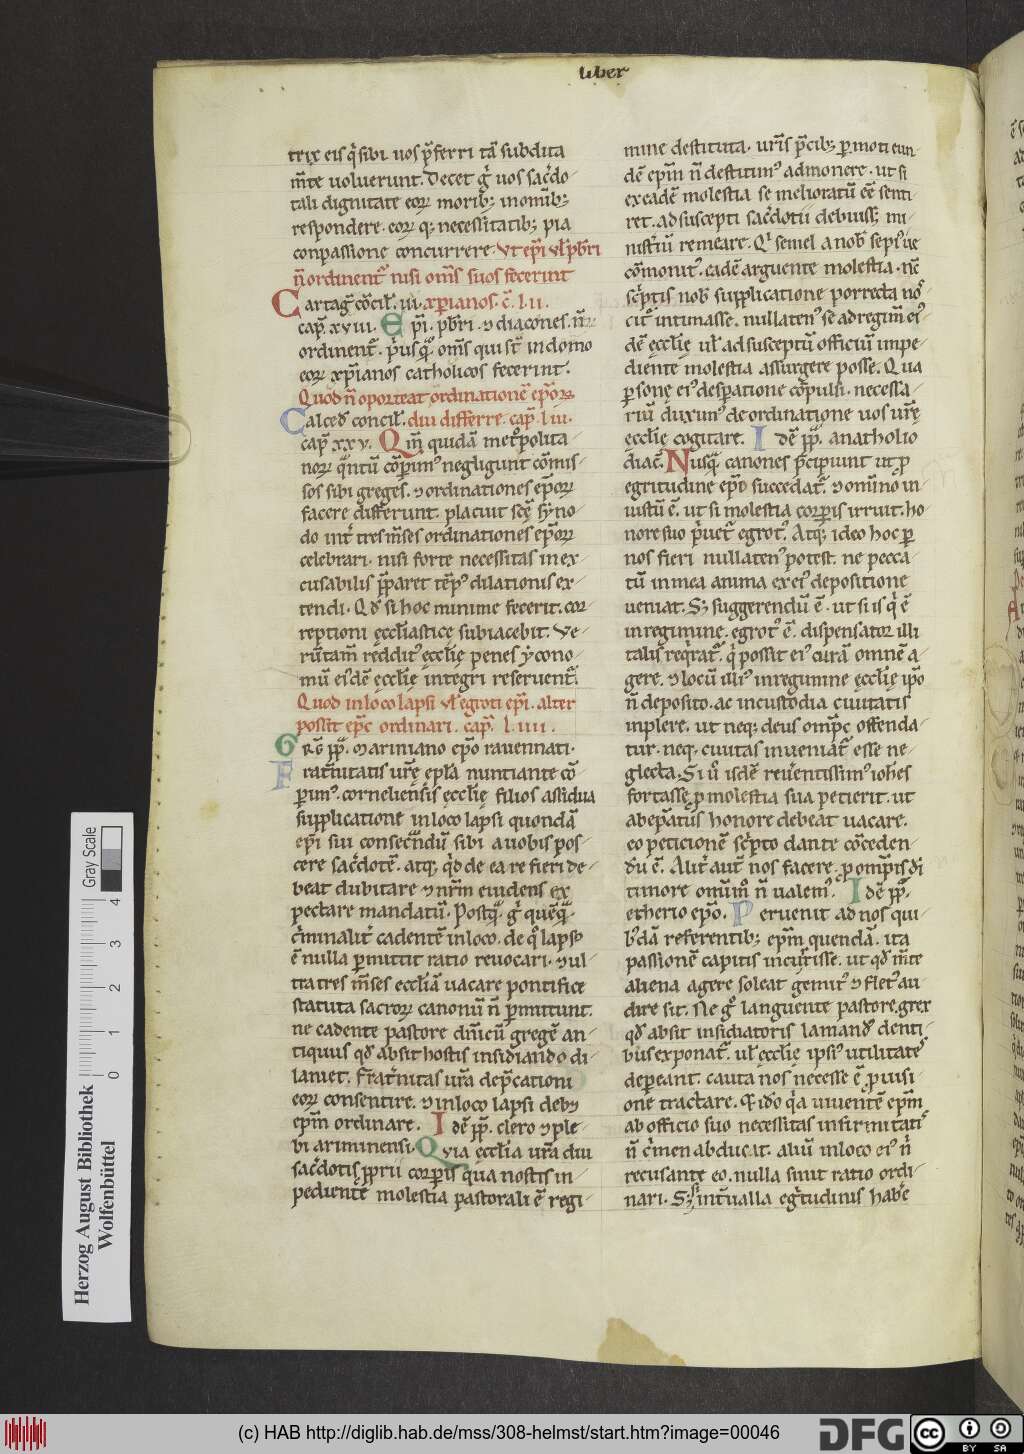 liber
trix eis q̇ sibi uos p̄ferri tā subdita
m̄te uoluerunt. Decet g̊ uos sac̄do-
tali dignitate eoꝝ morib; in om̄ib;
respondere. eoꝝ q; necessitatib; pia
conpassione concurrere. Vt ep̄i ul̄ pb̄ri
n̄ ordinent᷑ nisi om̄s suos fecerint
Cartag̅ cōcil̄. iii. xp̄ianos. c̄. l.ii.
cap̄. xviii. Ep̄i. pb̄ri. ⁊ diacones. n̄
ordinent᷑. p̄usq̄ om̄s qui st̄ in domo
eoꝝ xp̄ianos catholicos fecerint.
Quod n̄ oporteat ordinationē ep̄oꝝ
Calced̄ concil̄. diu differre. cap̄. l.iii.
cap̄ xxv. Qm̄ quidā met̊polita-
noꝝ q̄ntū cōꝑim᷒ negligunt cōmis-
sos sibi greges. ⁊ ordinationes ep̄oꝝ
facere differunt. placuit sc̄ę syno-
do int̄ tres m̄ses ordinationes ep̄oꝝ
celebrari. nisi forte necessitas inex-
cusabilis p̄paret tēp᷒ dilationis ex-
tendi. Qd̄ si hoc minime fecerit. cor-
reptioni ęccl̄iasticę subiacebit. Ve-
rūtam̄ reddit᷒ ęccl̄ię penes ycono-
mū eidē ęccl̄ię integri reseruent᷑.
Quod in loco lapsi ul̄ egroti ep̄i. alter
possit ep̄c ordinari. cap̄. l.iiii.
GRG̅ pp̄. Mariniano ep̄o rauennati.
Frat̄nitatis urę̄ ep̄la nuntiante cō-
ꝑim᷒. corneliensis ęccl̄ię filios assidua
supplicatione in loco lapsi quondā
ep̄i sui consec̄ndū sibi a uobis pos-
cere sac̄dotē. atq; qd̄ de ea re fieri de-
beat dubitare ⁊ nr̄m euidens ex-
pectare mandatū. Postq̄ g̊ quēq̄
c̄minalit̄ cadentē in loco. de q̊ lapso
ē nulla ꝑmittit ratio reuocari. ⁊ ul-
tra tres m̄ses ecclīā uacare pontifice
statuta sacroꝝ canonū n̄ ꝑmittunt.
ne cadente pastore dn̄icū gregē an-
tiquus qd̄ absit hostis insidiando di-
laniet. Frat̄nitas ur̄a dep̄cationi
eoꝝ consentire. ⁊ in loco lapsi deb⁊
ep̄m ordinare. Idē pp̄. clero ⁊ ple-
bi ariminensi. Quia ęccl̄ia ur̄a diu
sac̄dotis ꝓprii corꝑis qua nostis in-
pediente molestia pastorali ē regi-
mine destituta. ur̄is p̄cib; ꝑmoti eun-
dē ep̄m n̄ destitim᷒ admonere. ut si
ex eadē molestia se melioratū eē senti-
ret. ad suscepti sac̄dotii debuiss; mi-
nist̄iū remeare. Qi semel a nob̄ sepi᷒ ue
cōmonit᷒. eadē arguente molestia. nē
sc̄ptis nob̄ supplicatione porrecta no-
cit̄ intimasse. nullaten᷒ se ad regim̄ ei᷒-
dē ęccl̄ię ul̄ ad susceptū officiū impe-
diente molestia assurgere posse. Qua
ꝑsonę ei᷒ despatione cōpulsi. necessa-
riū duxim᷒ de ordinatione uos urę̄
ęccl̄ię cogitare. Idē pp̄. anatholio
diac̄. Nusq̄ canones p̄cipiunt ut ꝓ
egritudine ep̄o succedat᷑. ⁊ om̄ino in-
iustū ē. ut si molestia corꝑis irruit. ho-
nore suo p̄uet᷑ egrot᷒. Atq; ideo hoc ꝑ
nos fieri nullaten᷒ potest. ne pecca-
tū in mea anima ex ei᷒ depositione
ueniat. S; suggerendū ē. ut si is q̇ ē
in regimine. egrot᷒ ē. dispensator illi
talis reqrat᷑. q̇ possit ei᷒ curā omnē a-
gere. ⁊ locū illi᷒ in regimine ęccl̄ię ip̄o
n̄ deposito. ac in custodia ciuitatis
inplere. ut neq; deus omp̄c offenda-
tur. neq; ciuitas inueniat᷑ esse ne-
glecta. Si ů isdē reuentissim᷒ ioh̄es
fortasse ꝓ molestia sua petierit. ut
ab ep̄atus honore debeat uacare.
eo peticionē sc̄pto dante cōceden-
dū ē. Alit̄ aut̄ nos facere ꝓ omp̄is dī
timore om̄im̊ n̄ ualem᷒. Idē pp̄.
etherio ep̄o. Peruenit ad nos qui-
b᷒dā referentib; ep̄m quendā. ita
passionē capitis incurrisse. ut qd̄ m̄te
aliena agere soleat gemit᷒ ⁊ flet᷒ au-
dire sit. Ne g̊ languente pastore. grex
qd̄ absit insidiatoris laniand᷒ denti-
bus exponat᷑. ul̄ ęccl̄ię ipsi᷒ utilitates
depereant. cauta nos necesse ē ꝓuisi-
one tractare. Et iđo q̇a uiuentē ep̄m
ab officio suo necessitas infirmitatis
n̄ c̄men abducit. aliū in loco ei᷒ n̄
recusante eo. nulla sinit ratio ordi-
nari. S; si int̄ualla eg̊tudinis habe